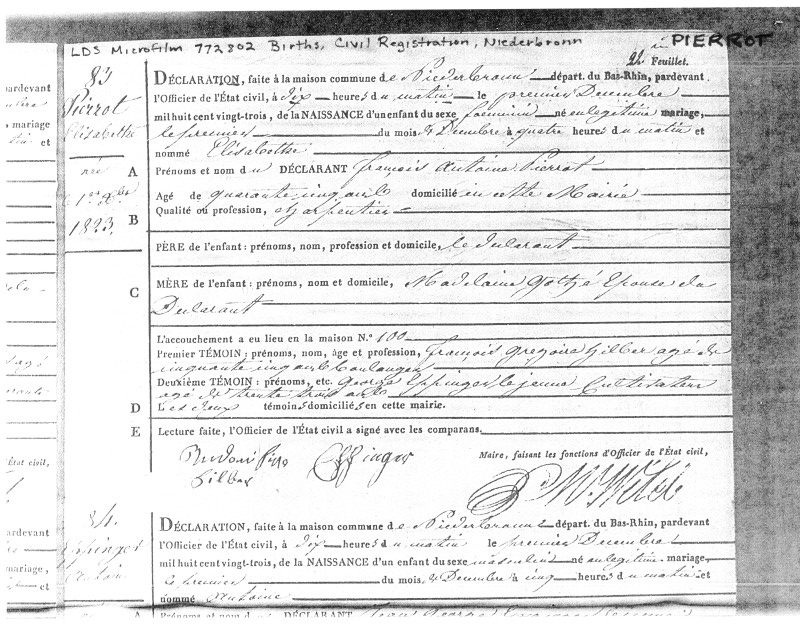 LDS Microfilm 772802 Births, Civil Registration, Niederbronn in PIERROT
Feuillet.
83
Pierrot
Elisabethe
née
1823
DÉCLARATION, faite à la maison commune de Niederbronn départ. du Bas-Rhin, pardevant
l'Officier de l'État civil, à dix heures du matin le premier Decembre
mil huit cent vingt-trois, de la NAISSANCE d'un enfant du sexe feminin né en legitime mariage,
le premier du mois de Decembre à quatre heures du matin et
nommé Elisabethe
A
Prénoms et nom du DÉCLARANT françois Antoine Pierrot
Agé de quarante cinq ans domicilié in cette Mairie
B
Qualité ou profession, charpentier
PÈRE de l'enfant: prénoms, nom, profession et domicile, le declarant
C
MÈRE de l'enfant: prénoms, nom et domicile, Madelaine Epouse du
Declarant
L'accouchement a eu lieu en la maison N.° 100
Premier TÉMOIN: prénoms, nom, âge et profession, françois Gregoire Hilber agé de
cinquante cinq ans boulanger
Deuxième TÉMOIN: prénoms, etc. George Eppinger le jeune Cultivateur
agé de trente trois ans
D
Les deux témoins domiciliés en cette mairie.
E
Lecture faite, l'Officier de l'État civil a signé avec les comparans.
Maire, faisant les fonctions d'Officier de l'État civil,
Hilber
Eppinger
84
Eppinger
Antoine
DÉCLARATION, faite à la maison commune de Niederbronn départ. du Bas-Rhin, pardevant
l'Officier de l'État civil, à dix heures du matin le premier Decembre
mil huit cent vingt-trois, de la NAISSANCE d'un enfant du sexe masculin né en legitime mariage,
le premier du mois de Decembre à cinq heures du matin et
nommé Antoine
A
Prénoms et nom du DÉCLARANT
pardevant
mariage
et
État civil,
pardevant
mariage,
et